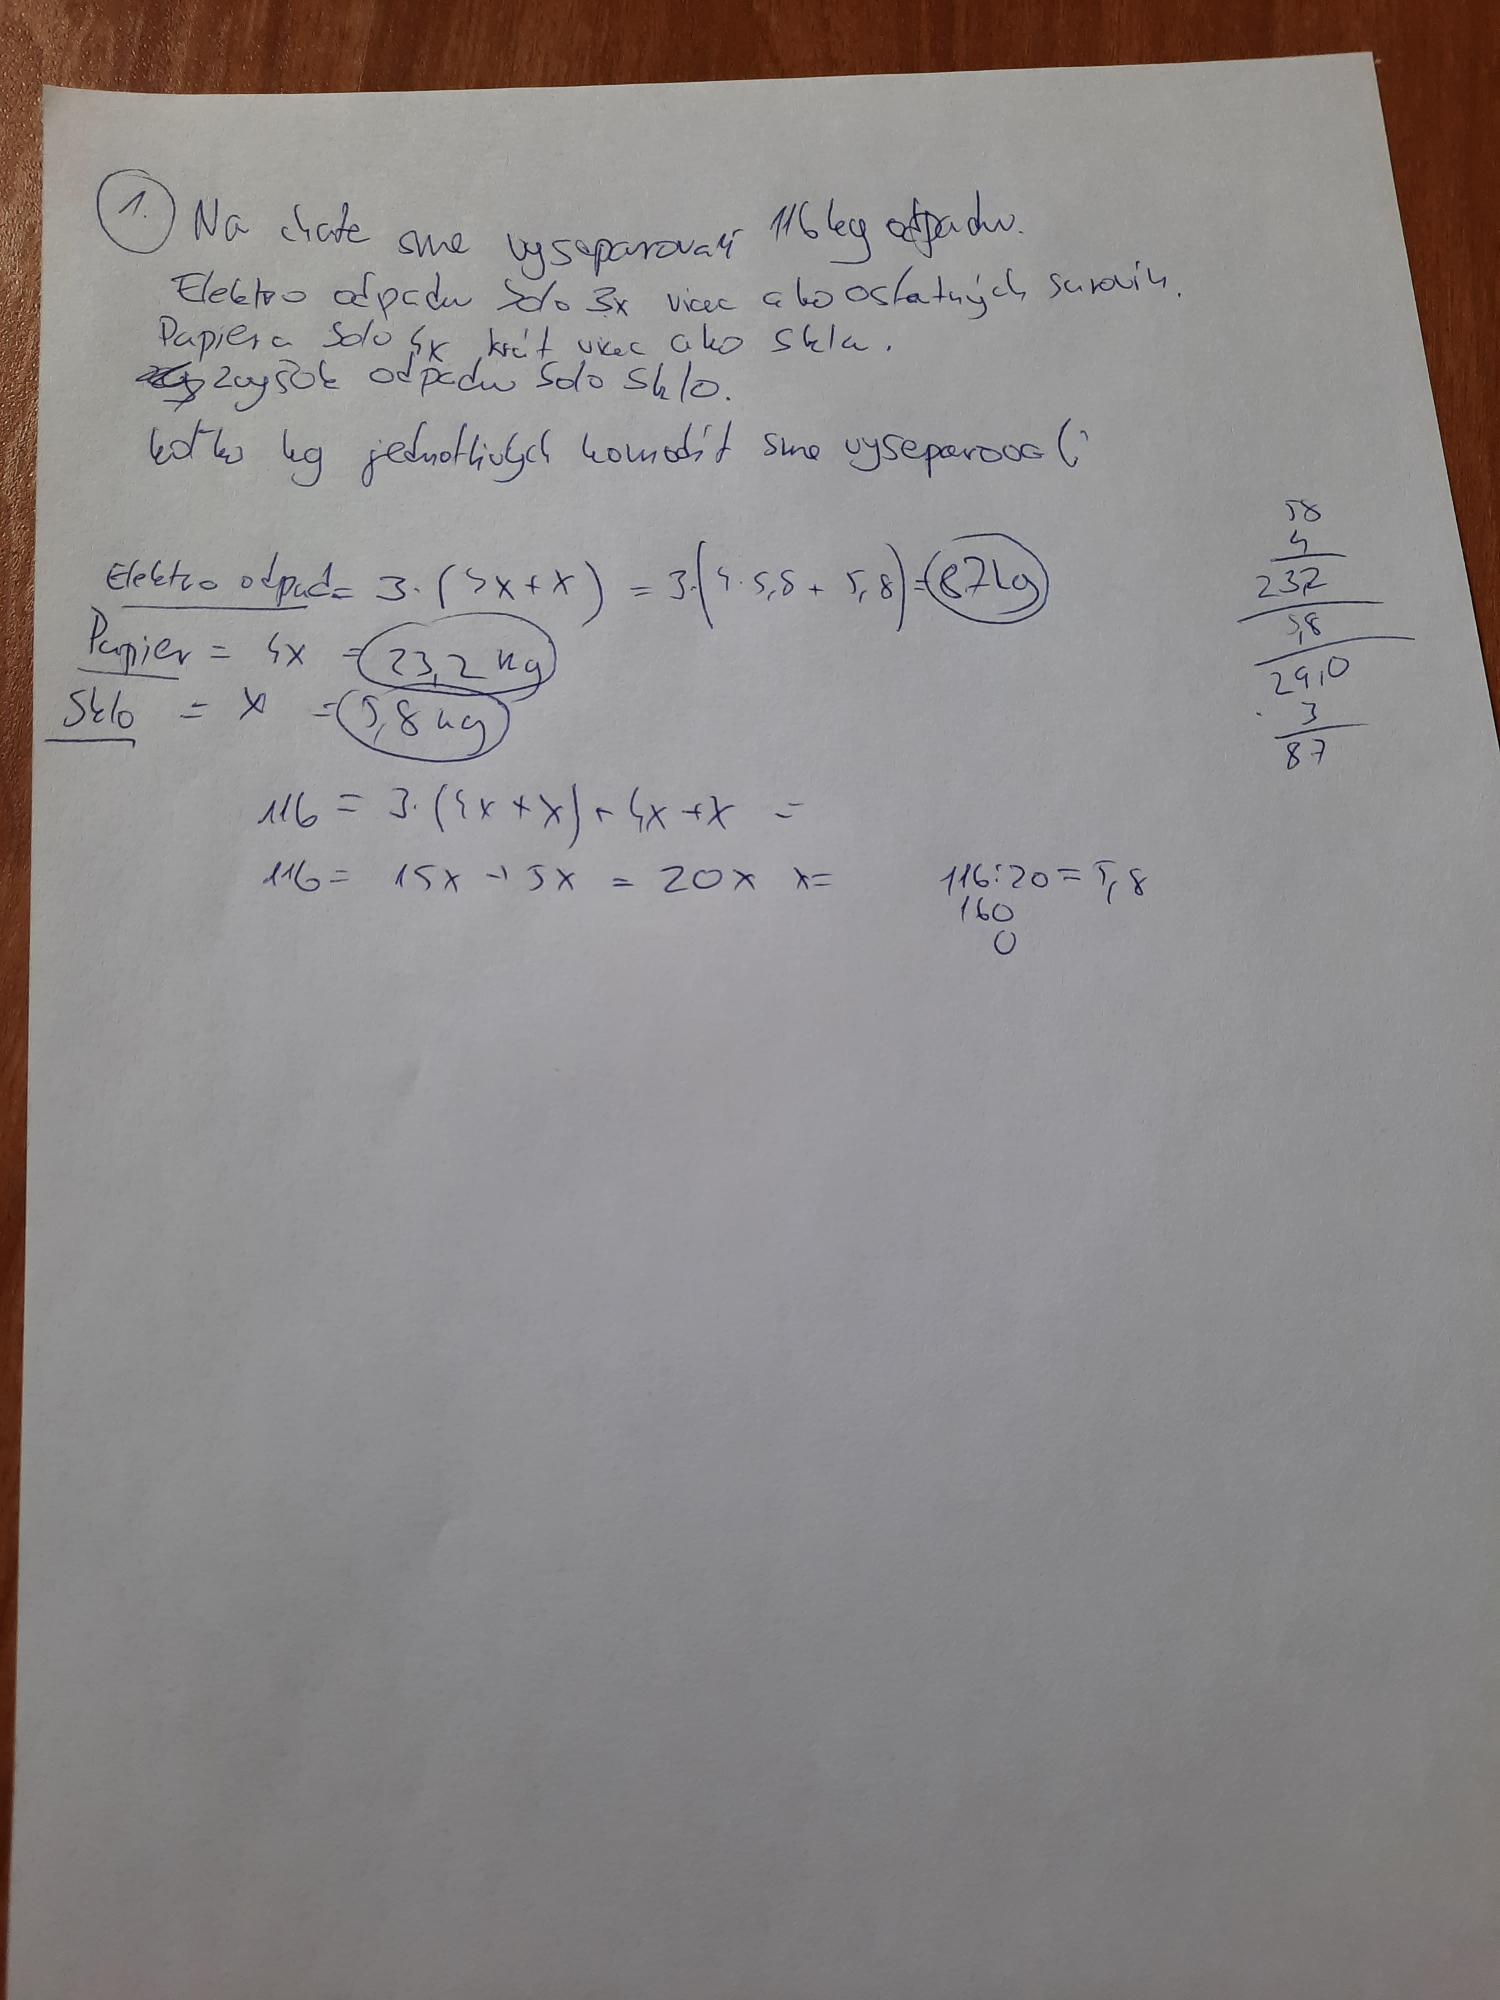 1. Na chate sme vyseparovali 116 kg odpadu.
Elektro odpadu bolo 3x viac ako ostatných surovín.
Papiera bolo 4x krát viac ako skla.
zvyšok odpadu bolo sklo.
koľko kg jednotlivých komodít sme vyseparovali
Elektro odpad = 3·(4x+x) = 3·(4·5,8 + 5,8) = 87 kg
Papier = 4x = 23,2 kg
Sklo = x = 5,8 kg
116 = 3·(4x+x)+4x+x =
116 = 15x + 5x = 20x x=
116:20=5,8
160
0
58
4
23,2
5,8
29,0
· 3
87